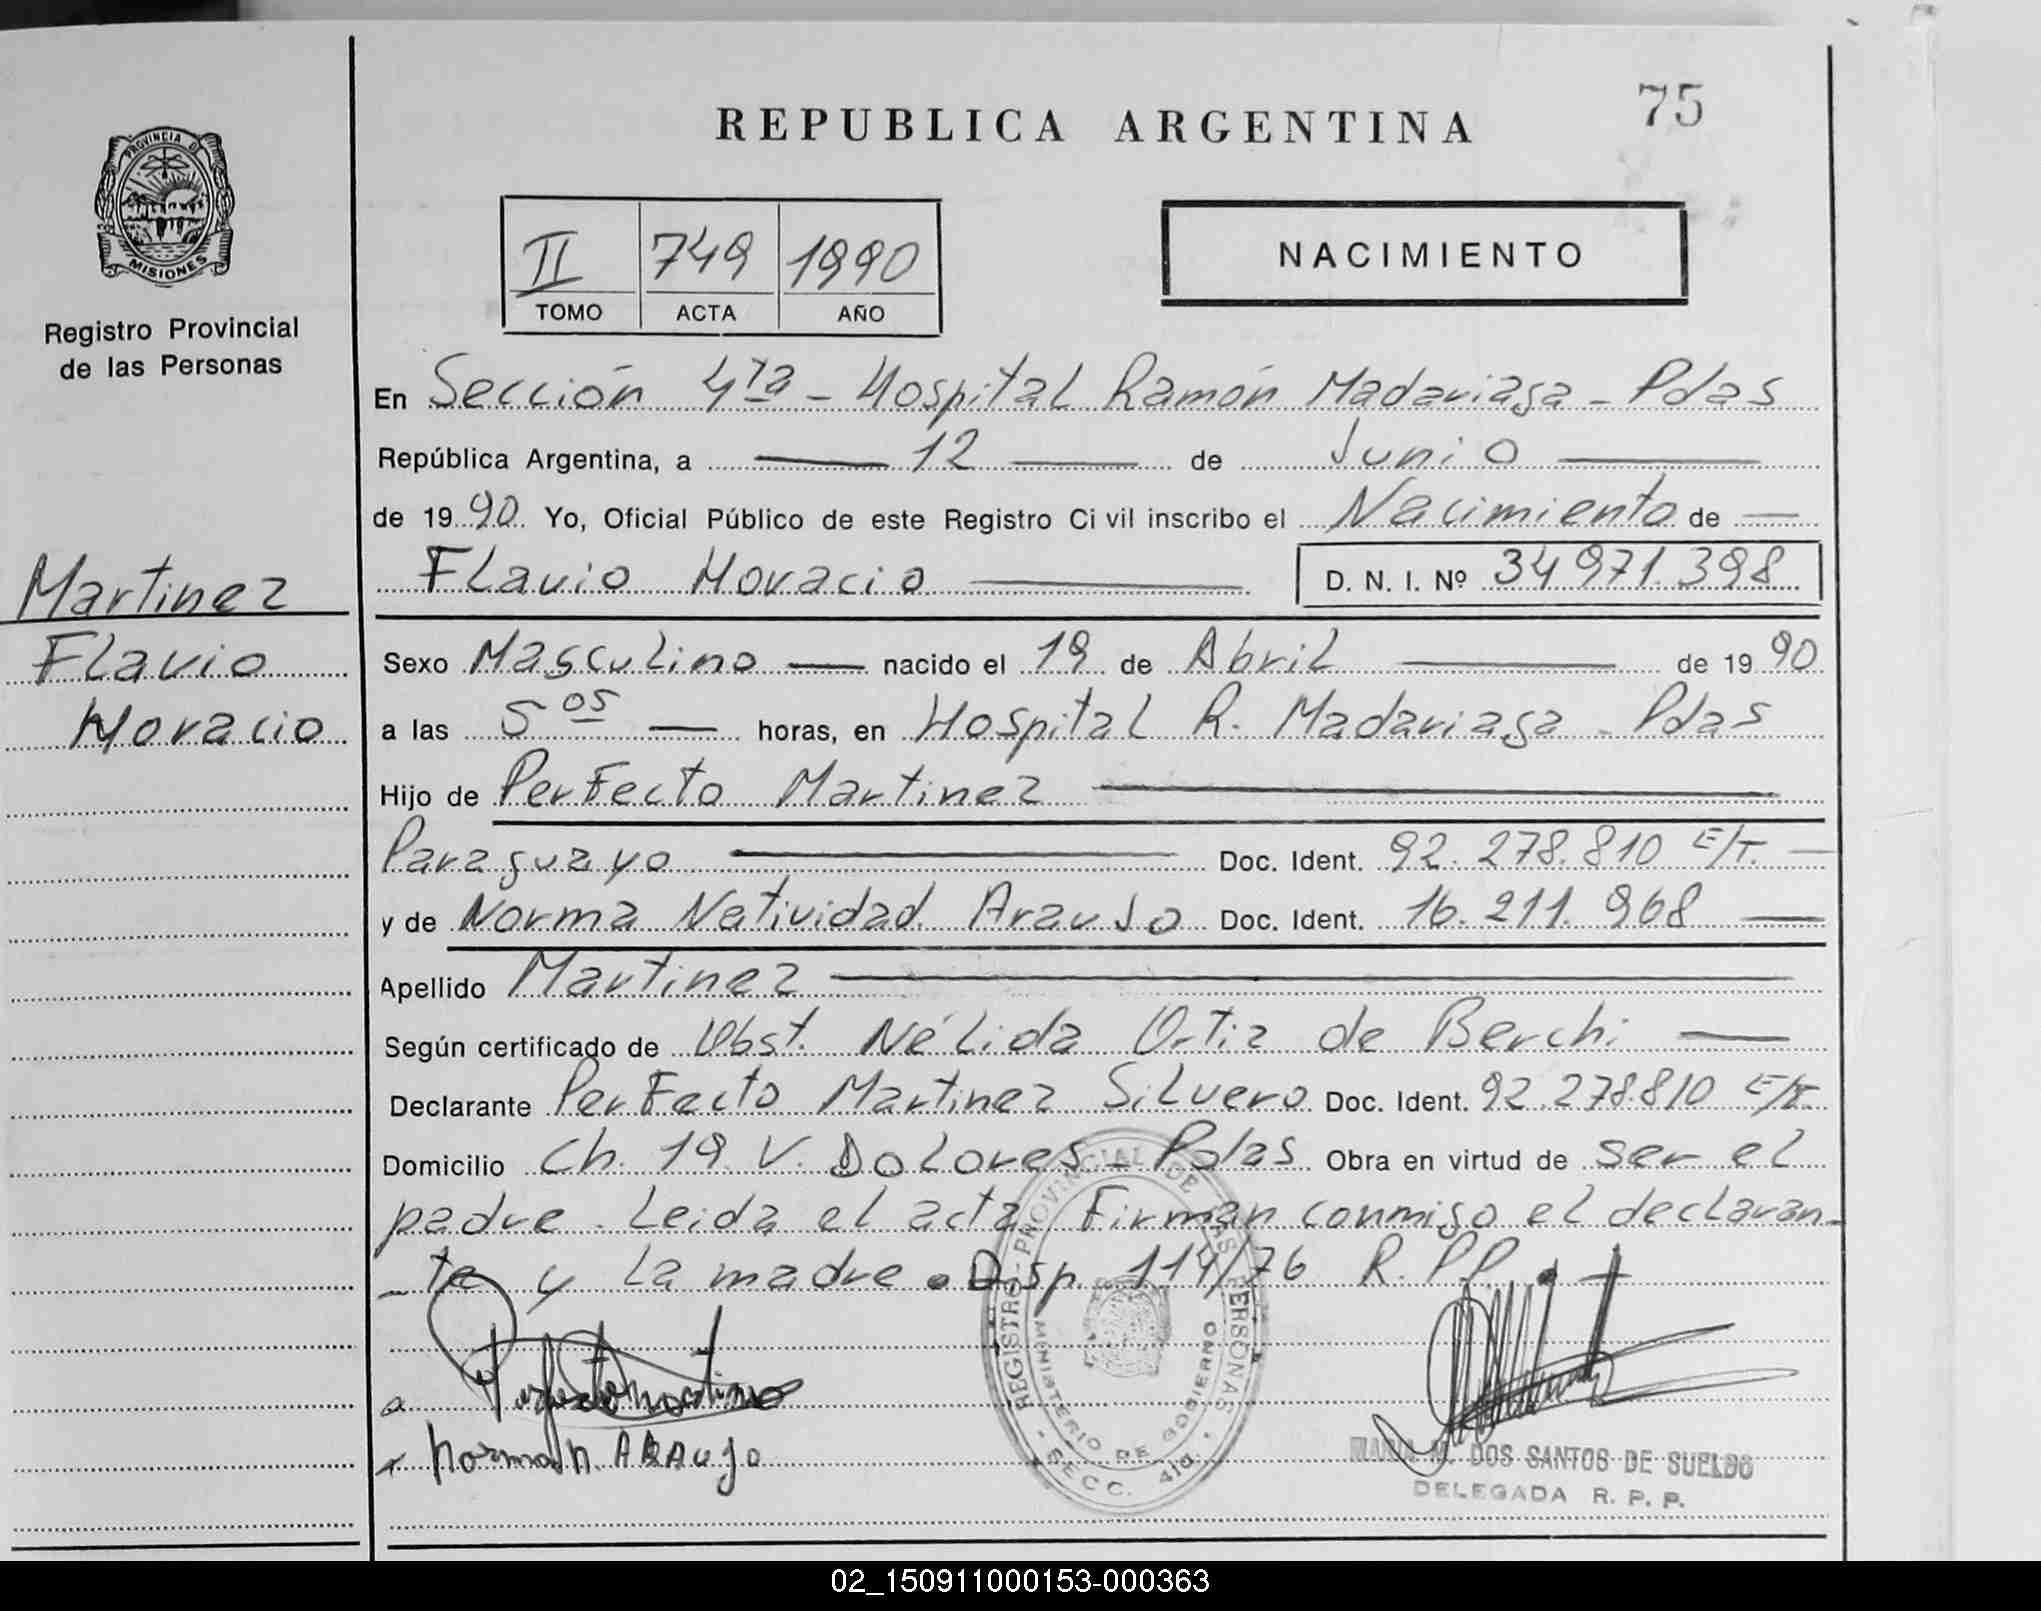 75
REPUBLICA ARGENTINA
PROVINCIA D
MISIONES
Registro Provincial
de las Personas
II 749 1990
TOMO ACTA AÑO
NACIMIENTO
En Sección 4ta - Hospital Ramón Madariaga - Pdas
República Argentina, a 12 de Junio
de 1990 Yo, Oficial Público de este Registro Civil inscribo el Nacimiento de
Flavio Horacio D. N. I. Nº 34 971.398
Martinez
Flavio
Horacio
Sexo Masculino nacido el 19 de Abril de 19 90
a las 5 05 horas, en Hospital R. Madariaga - Pdas
Hijo de Perfecto Martinez
Paraguayo Doc. Ident. 92.278.810 E/T.
y de Norma Natividad Araujo Doc. Ident. 16.211.968
Apellido Martinez
Según certificado de Obst. Nélida Ortiz de Berchi
Declarante Perfecto Martinez Silvero Doc. Ident. 92.278.810 E/T.
Domicilio Ch. 19 V. Dolores - Pdas Obra en virtud de ser el
padre. Leida el acta Firman conmigo el declaran-
-te y la madre. Disp. 114/76 R.P.P.
REGISTRO PROVINCIAL DE LAS PERSONAS
MINISTERIO DE GOBIERNO
SECC. 4ta.
Perfecto Martinez
Norma N. ARAujo
MARIA M. DOS SANTOS DE SUELDO
DELEGADA R. P. P.
02_150911000153-000363